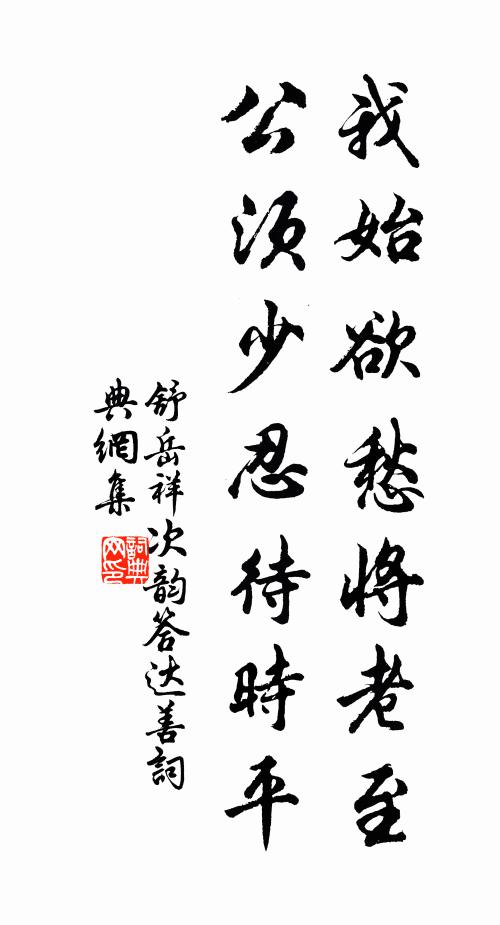 我始欲愁將老至
公須少忍待時平
舒岳祥次韵答达善詞
典網集
詞典
网印